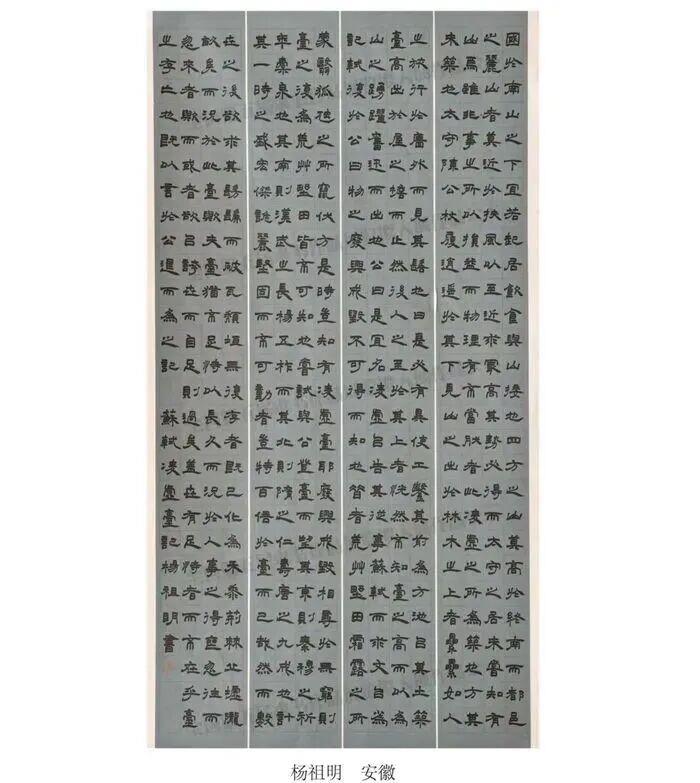 國於南山之下宜若起居飲食與山接也四方之山莫高於終南而都邑
之麗山者莫近於扶風以至近求最高其勢必得而太守之居未嘗知有
山焉雖非事之所以損益而物理有不當然者此凌虛之所為築也方其
未築也太守陳公杖履逍遙於其下見山之出於林木之上者纍纍如人
之旅行於牆外而見其髻也曰是必有異使工鑿其前為方池以其土築
臺高出於屋之檐而止然後人之至於其上者恍然不知臺之高而以為
山之踴躍奮迅而出也公曰是宜名凌虛以告其從事蘇軾而求文以為
記軾復於公曰物之廢興成毀不可得而知也昔者荒艸野田霜露之所
蒙翳狐虺之所竄伏方是時豈知有凌虛臺耶廢興成毀相尋於無窮則
臺之復為荒艸野田皆不可知也嘗試與公登臺而望其東則秦穆之祈
年橐泉也其南則漢武之長楊五柞而其北則隋之仁壽唐之九成也計
其一時之盛宏傑詭麗堅固而不可動者豈特百倍於臺而已哉然而數
世之後欲求其髣髴而破瓦頹垣無復存者既已化為禾黍荊棘丘墟隴
畝矣而況於此臺歟夫臺猶不足恃以長久而況於人事之得喪忽往而
忽來者歟而或者欲以誇世而自足則過矣蓋世有足恃者而不在乎臺
之存亡也既以言於公退而為之記 蘇軾凌虛臺記楊祖明書
杨祖明 安徽